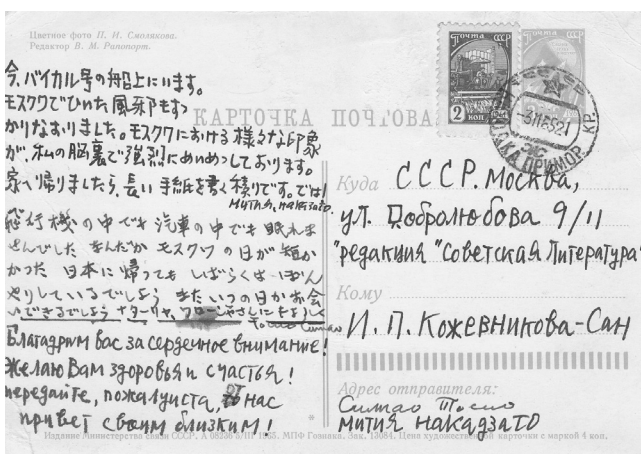 Цветное фото П. И. Смолякова.
Редактор В. М. Рапопорт.
今、バイカル号の船上にいます。
モスクワでひいた風邪もすっ
かりなおりました。モスクワにおける様々な印象
が私の脳裏で強烈にあいめいしております。
家へ帰りましたら、長い手紙を書く積りです。では!
ミチヤ, накадзато.
飛行機の中でも汽車の中でも眠れま
せんでした なんだか モスクワの日が短か
かった 日本に帰っても しばらくは ぼん
やりしているでしょう またいつの日かお会
いできるでしょう ナターリャ, さんにもよろしく
Тосио Симао
Благадрим вас за сердечное внимание!
Желаю Вам здоровья и счастья!
передайте, пожалуиста, от нас
привет своим близким!
КАРТОЧКА ПОЧТОВА
ПОЧТА СССР
2 коп
ПОЧТА СССР
НАХОДКА ПРИМОР. КР.
Куда СССР. Москва,
ул. Добролюбова 9/11
"редакция "Советская Литература"
Кому
И. П. Кожевникова-Сан
Адрес отправителя:
Симао Тосио
мития накадзато
Издание Министерства связи СССР. А 08236 5/III 1965. МПФ Гознака. Зак. 13084. Цена художественной карточки с маркой 4 коп.